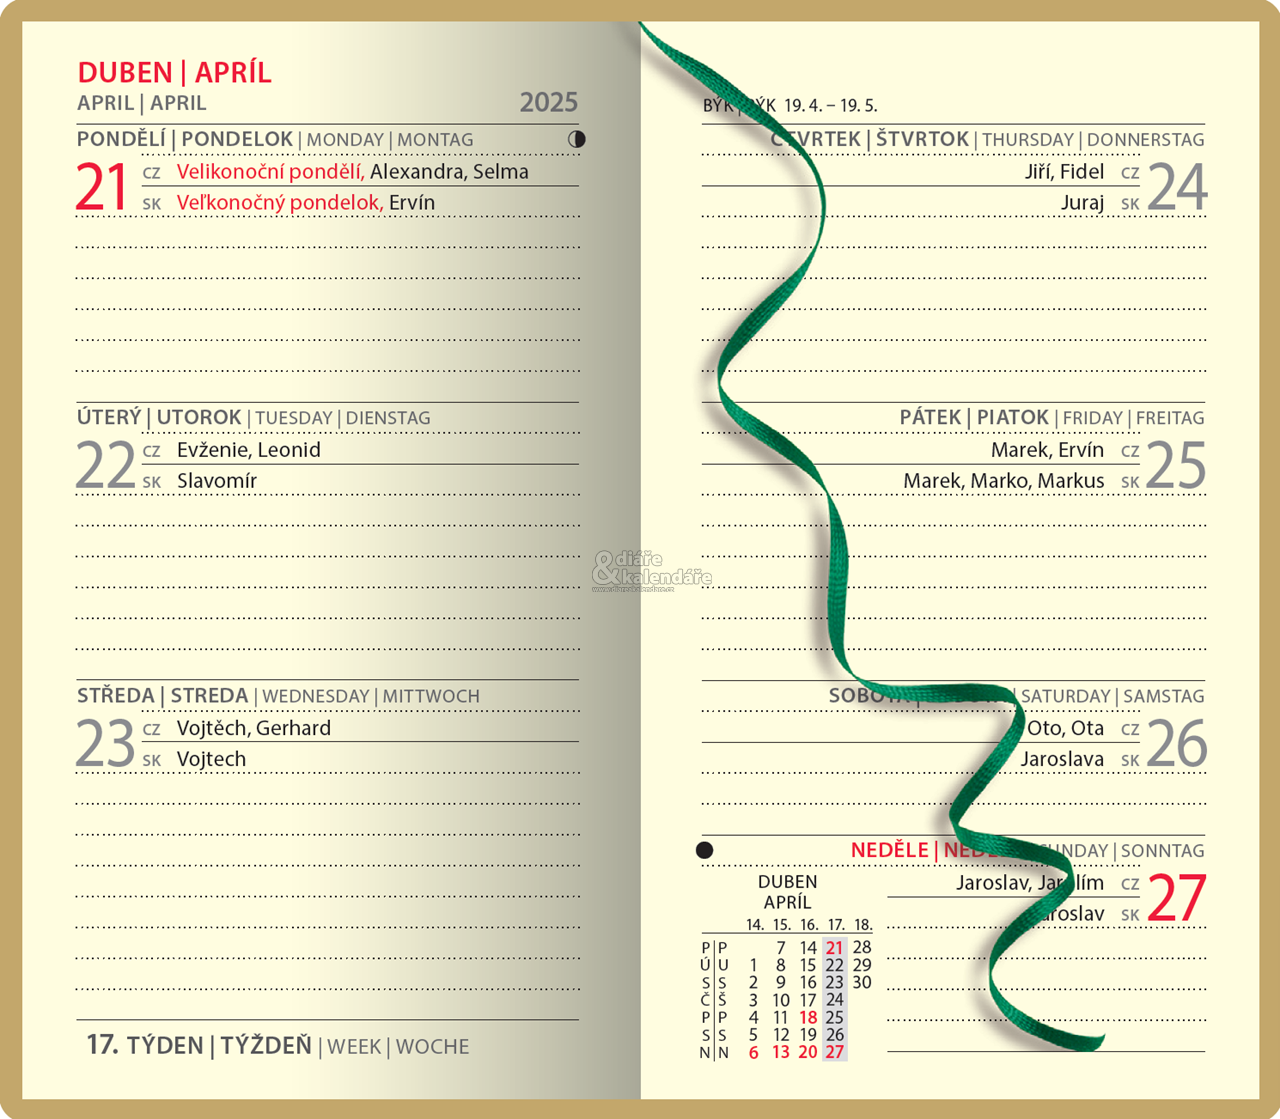 DUBEN | APRÍL
APRIL | APRIL 2025
PONDĚLÍ | PONDELOK | MONDAY | MONTAG
21 CZ Velikonoční pondělí, Alexandra, Selma
SK Veľkonočný pondelok, Ervín
ÚTERÝ | UTOROK | TUESDAY | DIENSTAG
22 CZ Evženie, Leonid
SK Slavomír
STŘEDA | STREDA | WEDNESDAY | MITTWOCH
23 CZ Vojtěch, Gerhard
SK Vojtech
17. TÝDEN | TÝŽDEŇ | WEEK | WOCHE
diáře
& kalendáře
www.diareakalendare.cz
BÝK | BÝK 19. 4. – 19. 5.
ČTVRTEK | ŠTVRTOK | THURSDAY | DONNERSTAG
Jiří, Fidel CZ 24
Juraj SK
PÁTEK | PIATOK | FRIDAY | FREITAG
Marek, Ervín CZ 25
Marek, Marko, Markus SK
SOBOTA | SATURDAY | SAMSTAG
Oto, Ota CZ 26
Jaroslava SK
NEDĚLE | SUNDAY | SONNTAG
Jaroslav, Jarolím CZ 27
Jaroslav SK
DUBEN
APRÍL
14. 15. 16. 17. 18.
P P 7 14 21 28
Ú U 1 8 15 22 29
S S 2 9 16 23 30
Č Š 3 10 17 24
P P 4 11 18 25
S S 5 12 19 26
N N 6 13 20 27